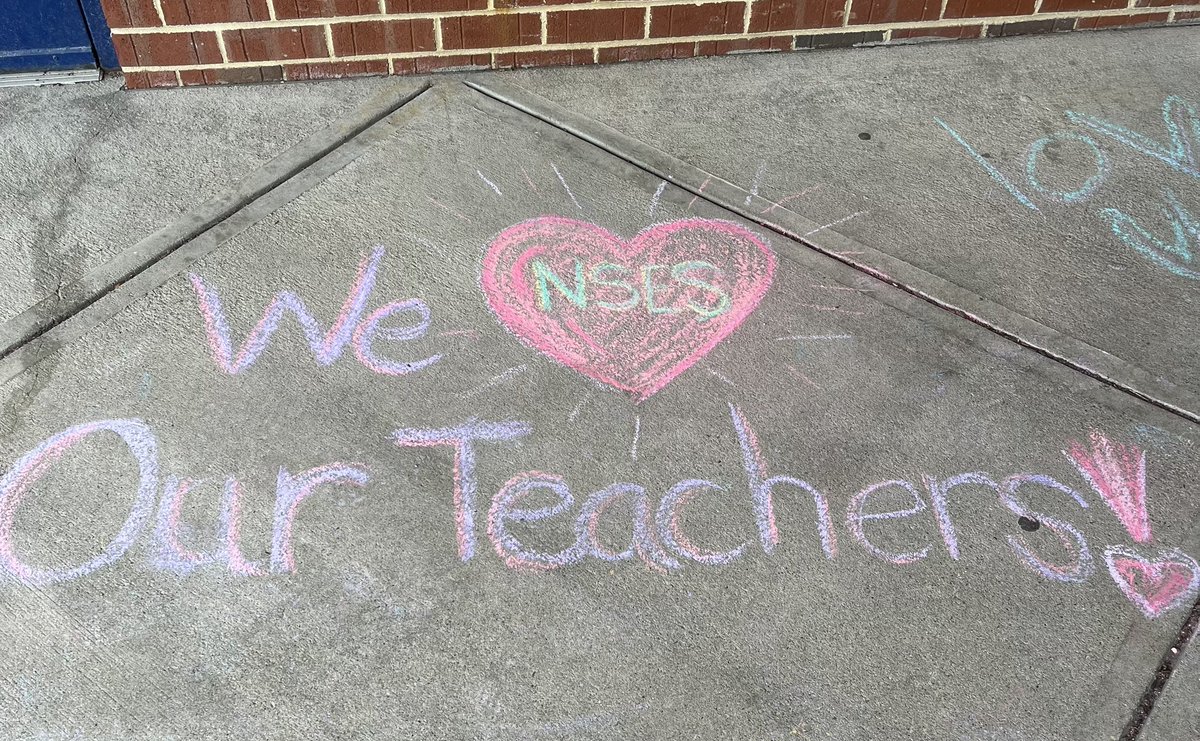 We NSES
Our Teachers!